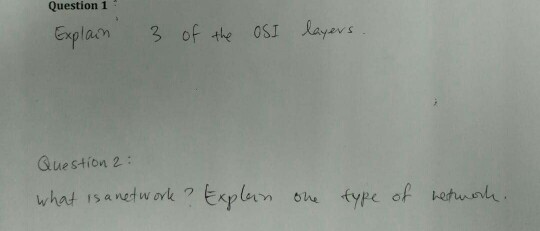 Question 1 :
Explain 3 of the OSI layers.
Question 2:
what is a network? Explain one type of network.